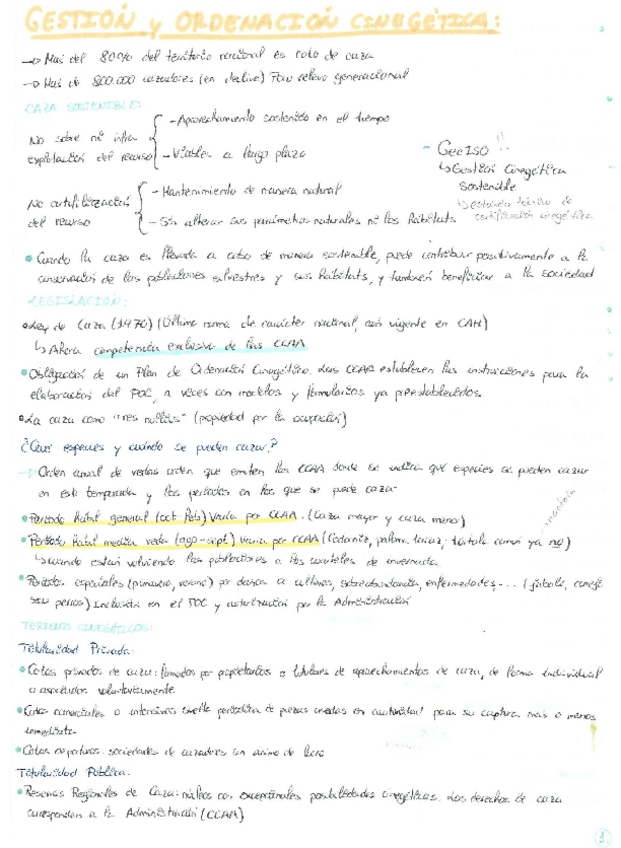 GESTIÓN y ORDENACIÓN CINEGÉTICA:
→ Más del 80% del territorio nacional es coto de caza
→ Más de 800.000 cazadores (en declive) Poco relevo generacional
CAZA SOSTENIBLE:
No sobre ni infra explotación del recurso
- Aprovechamiento sostenido en el tiempo
- Viables a largo plazo
No artificialización del recurso
- Mantenimiento de manera natural
- Sin alterar sus parámetros naturales ni los hábitats
- GECISO!!
↳ Gestión Cinegética
Sostenible
↳ estándar técnico de
certificación cinegética
• Cuando la caza es llevada a cabo de manera sostenible, puede contribuir positivamente a la
conservación de las poblaciones silvestres y sus hábitats, y también beneficiar a la sociedad
LEGISLACIÓN:
• Ley de Caza (1970) (Última norma de carácter nacional, aún vigente en CAM)
↳ Ahora competencia exclusiva de las CCAA
• Obligación de un Plan de Ordenación Cinegético. Las CCAA establecen las instrucciones para la
elaboración del POC, a veces con modelos y formularios ya preestablecidos.
• La caza como "res nullius" (propiedad por la ocupación)
¿Qué especies y cuándo se pueden cazar?
→ Orden anual de vedas orden que emiten las CCAA donde se indica qué especies se pueden cazar
en esta temporada y los periodos en los que se puede cazar
• Periodo hábil general (oct-feb) Varía por CCAA. (Caza mayor y caza menor)
• Periodo hábil media veda (ago-sept) Varía por CCAA (Codorniz, paloma torcaz, tórtola común ya no)
↳ cuando están volviendo las poblaciones a los cuarteles de invernada
• Periodos especiales (primavera, verano) por daños a cultivos, sobreabundancia, enfermedades... (jabalí, conejo
sin perros) Incluidos en el POC y autorización por la Administración
TERRENOS CINEGÉTICOS:
Titularidad Privada:
• Cotos privados de caza: formados por propietarios o titulares de aprovechamientos de caza, de forma individual
o asociados voluntariamente
• Cotos comerciales o intensivos suelta periódica de piezas criadas en cautividad para su captura más o menos
inmediata
• Cotos deportivos: sociedades de cazadores sin ánimo de lucro
Titularidad Pública:
• Reservas Regionales de Caza: núcleos con excepcionales posibilidades cinegéticas. Los derechos de caza
corresponden a la Administración (CCAA)
1.